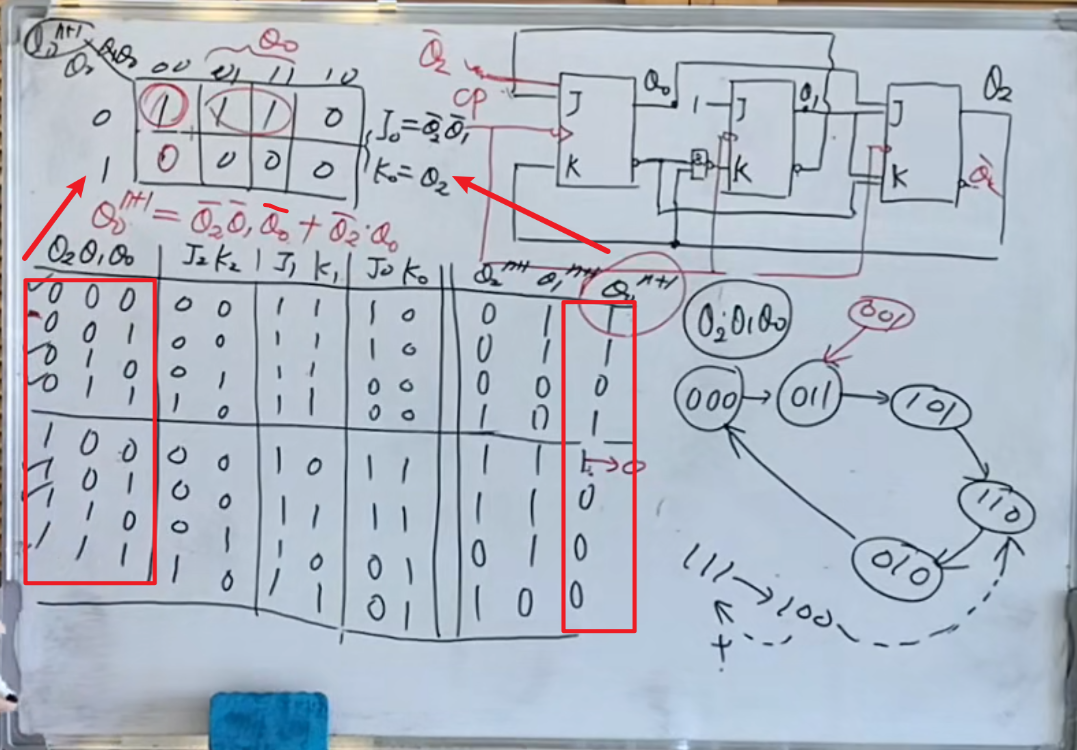 Q₀ⁿ⁺¹ Q₁Q₀ 00 01 11 10 Q₀
Q₂
0 1 1 1 0
1 0 0 0 0
J₀ = Q̄₂Q̄₁
K₀ = Q₂
Q₀ⁿ⁺¹ = Q̄₂Q̄₁Q̄₀ + Q̄₂·Q₀
Q̄₂
CP
J K Q₀
1 J K Q₁
&
J K Q₂ Q̄₂
Q₂ Q₁ Q₀ | J₂ K₂ | J₁ K₁ | J₀ K₀ || Q₂ⁿ⁺¹ Q₁ⁿ⁺¹ Q₀ⁿ⁺¹
0 0 0 | 0 0 | 1 1 | 1 0 || 0 1 1
0 0 1 | 0 0 | 1 1 | 1 0 || 0 1 1
0 1 0 | 0 1 | 1 1 | 0 0 || 0 0 0
0 1 1 | 1 0 | 1 1 | 0 0 || 1 0 1
1 0 0 | 0 0 | 1 0 | 1 1 || 1 1 1→0
1 0 1 | 0 0 | 1 1 | 1 1 || 1 1 0
1 1 0 | 0 1 | 1 0 | 0 1 || 0 1 0
1 1 1 | 1 0 | 1 1 | 0 1 || 1 0 0
Q₂Q₁Q₀
001
000 → 011 → 101
110
010
111 → 100